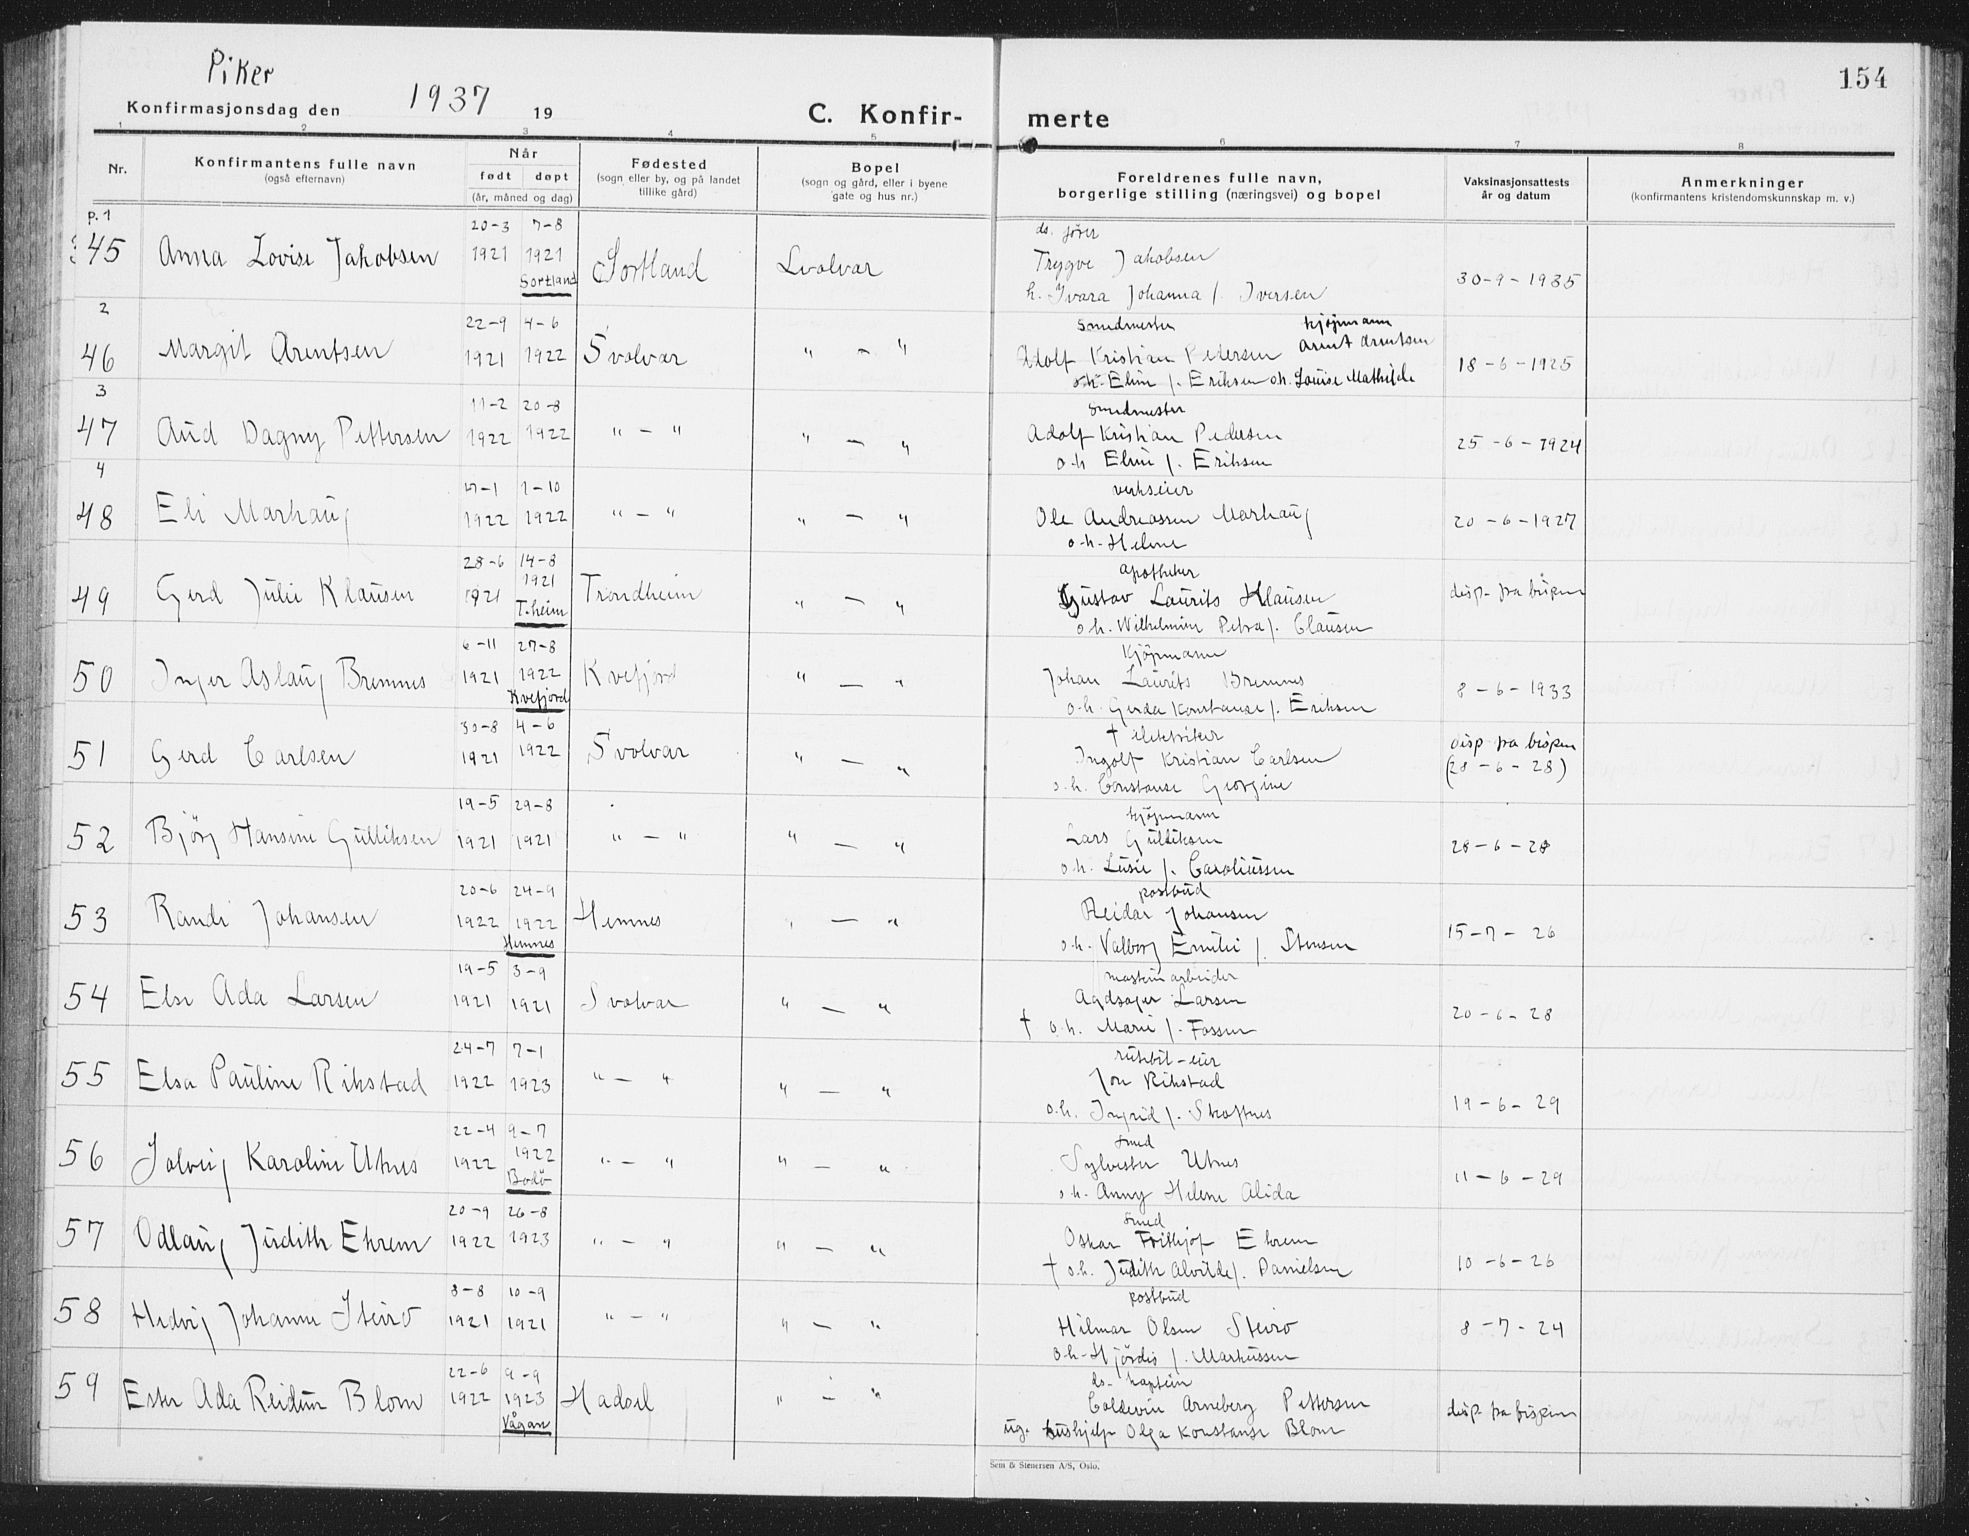 Piker
154
Konfirmasjonsdag den 1937 19
C. Konfir- merte
1 2 3 4 5 6 7 8
Nr.
Konfirmantens fulle navn
(også efternavn)
Når
født døpt
(år, måned og dag)
Fødested
(sogn eller by, og på landet
tillike gård)
Bopel
(sogn og gård, eller i byene
gate og hus nr.)
Foreldrenes fulle navn,
borgerlige stilling (næringsvei) og bopel
Vaksinasjonsattests
år og datum
Anmerkninger
(konfirmantens kristendomskunnskap m. v.)
p. 1
20-3 7-8 ds. fører
45 Anna Lovise Jakobsen 1921 1921 Sortland Svolvær Trygve Jakobsen 30-9-1935
Sortland h. Ivara Johanna f. Iversen
2
22-9 4-6 Smedmester kjøpmann
46 Margit Arentsen 1921 1922 Svolvær " - " Adolf Kristian Pedersen Arent Arentsen 18-6-1925
o.h. Eline f. Eriksen o.h. Louise Mathilde
3
11-2 20-8 Smedmester
47 Aud Dagny Pettersen 1922 1922 " - " " - " Adolf Kristian Pedersen 25-6-1924
o.h Eline f. Eriksen
4
1-10 verkseier
48 Eli Marhaug 1922 1922 " - " " - " Ole Andreassen Marhaug 20-6-1927
o-h-Helene
28-6 14-8 apotheker
49 Gerd Julie Klausen 1921 1921 Trondheim " - " Gustav Laurits Klausen disp. fra bispen
T.heim o.h. Wilhelmine Petra f. Clausen
6-11 27-8 kjøpmann
50 Inger Aslaug Bremnes 1921 1922 Kvefjord " - " Johan Laurits Bremnes 8-6-1933
Kvefjord o.h. Gerda Konstanse f. Eriksen
30-8 4-6 † elektriker
51 Gerd Carlsen 1921 1922 Svolvær " - " Ingolf Kristian Carlsen disp fra bispen
(28-6-28)
o.h. Constanse Georgine
19-5 29-8 kjøpmann
52 Bjørg Hansine Gulliksen 1921 1921 " - " " - " Lars Gulliksen 28-6-28
o.h. Lusie f. Caroliussen
20-6 24-9 postbud
53 Randi Johansen 1922 1922 Hemnes " - " Reidar Johansen 15-7-26
Hemnes o.h. Valborg Emilie f. Stensen
19-5 3-9 maskinarbeider
54 Else Ada Larsen 1921 1921 Svolvær " - " Larsen 20-6-28
† o.h. Marie f. Fossen
24-7 7-1 rutebil-eier
55 Elsa Pauline Rikstad 1922 1923 " - " " - " Jon Rikstad 19-6-29
o.h. Ingrid f. Skoftnes
22-4 9-7 smed
56 Solveig Karoline Utnes 1922 1922 " - " " - " Sylvester Utnes 11-6-29
Bodö o.h. Anny Helene Alida
20-9 26-8 smed
57 Odlaug Judith Ekrem 1922 1923 " - " " - " Oskar Frithjof Ekrem 10-6-26
† o.h. Judith Alvilde f. Danielsen
8-8 10-9 postbud
58 Hedvig Johanne Steiro 1921 1921 " - " " - " Hilmar Olsen Steiro 8-7-24
o-h-Hjördis f. Markussen
22-6 9-9 ds- kaptein
59 Ester Ada Reidun Blom 1922 1923 Hadsel " - " Arneberg Pettersen disp. fra bispen
Vågan ug. hushjelp Olga Konstanse Blom
Sem & Stenersen A/S, Oslo.